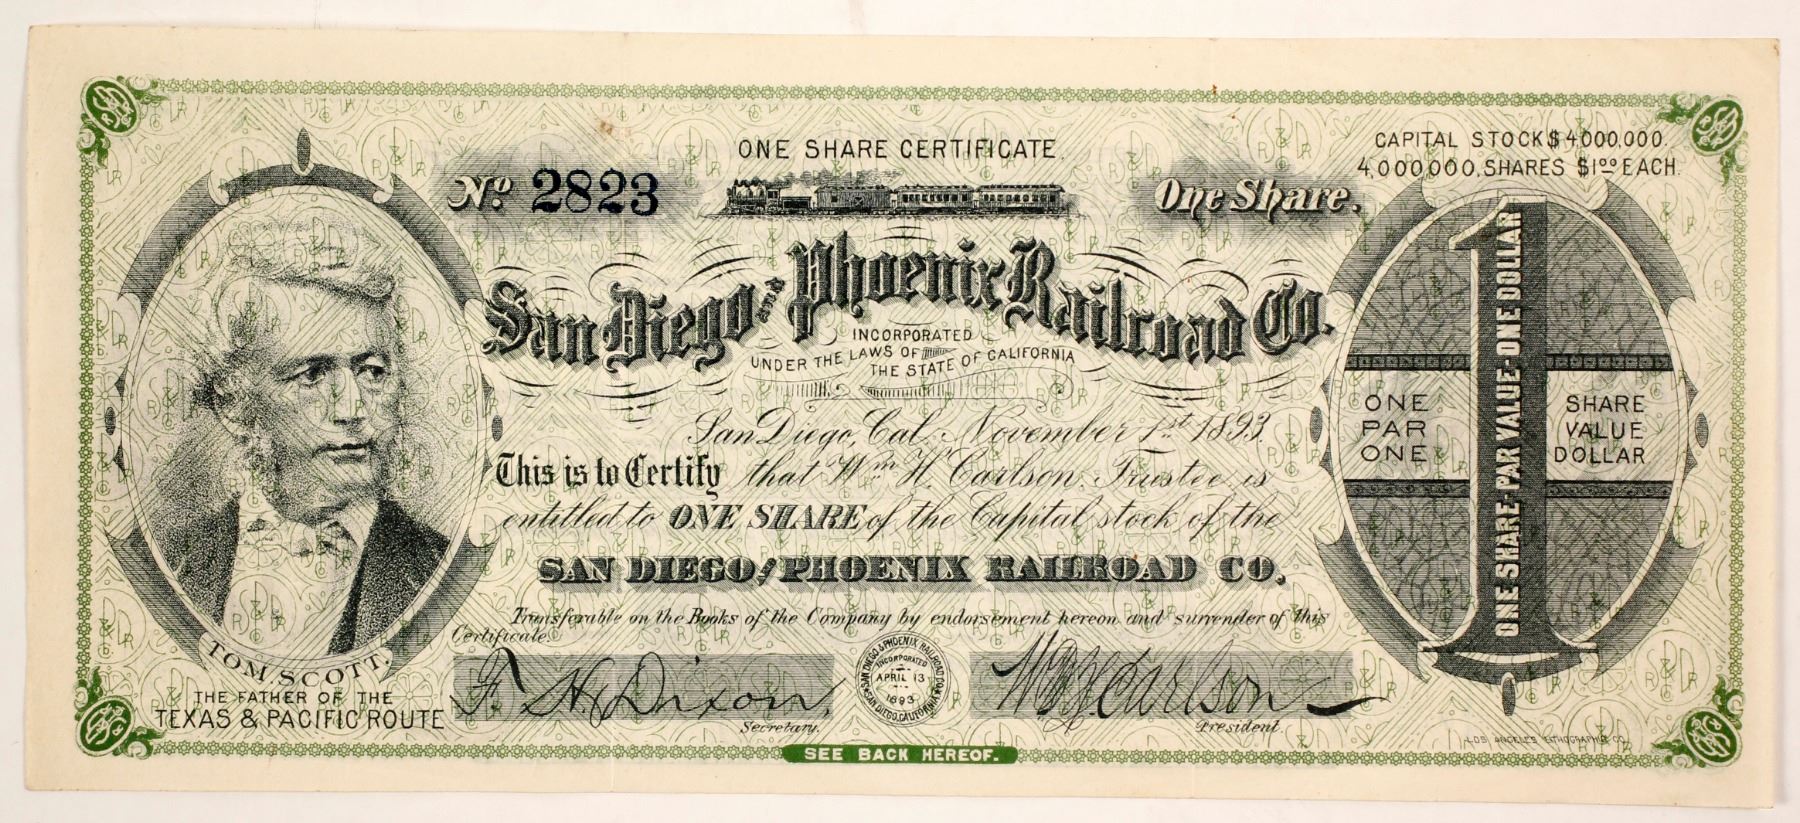 ONE SHARE CERTIFICATE.
CAPITAL STOCK $4,000,000.
4,000,000, SHARES $1.00 EACH.
No. 2823
One Share.
San Diego and Phoenix Railroad Co.
INCORPORATED
UNDER THE LAWS OF THE STATE OF CALIFORNIA
San Diego, Cal. November 1st 1893.
This is to Certify that Wm. H. Carlson, Trustee, is
entitled to ONE SHARE of the Capital stock of the
SAN DIEGO & PHOENIX RAILROAD CO.
Transferable on the Books of the Company by endorsement hereon and surrender of this
Certificate.
TOM. SCOTT.
THE FATHER OF THE
TEXAS & PACIFIC ROUTE
F. H. Dixon,
Secretary.
SAN DIEGO & PHOENIX RAILROAD COMPANY
INCORPORATED
APRIL 13
1893
SAN DIEGO, CALIFORNIA
Wm H Carlson
President.
1
ONE SHARE-PAR VALUE-ONE DOLLAR
ONE SHARE
PAR VALUE
ONE DOLLAR
LOS ANGELES LITHOGRAPHIC CO.
SEE BACK HEREOF.